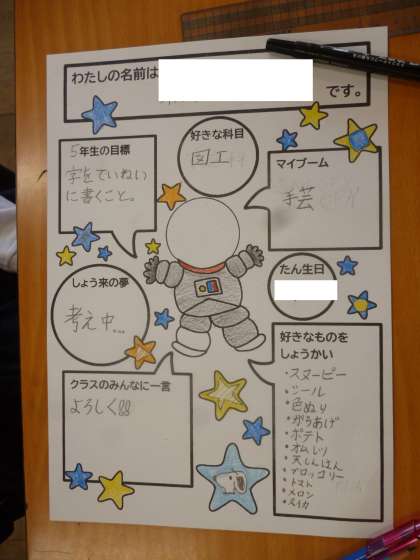 わたしの名前は
です。
好きな科目
図工
5年生の目標
字をていねい
に書くこと。
マイブーム
手芸
たん生日
しょう来の夢
考え中...
好きなものを
しょうかい
・スヌーピー
・シール
・色ぬり
・からあげ
・ポテト
・オムレツ
・天しんはん
・ブロッコリー
・トマト
・メロン
・スイカ
クラスのみんなに一言
よろしく!!